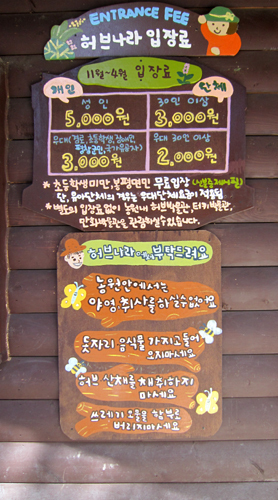 ENTRANCE FEE
허브나라 입장료
11월-4월 입장료
개인
단체
성인
5,000원
30인 이상
3,000원
우대(경로,초등학생,장애인,
평창군민,국가유공자)
3,000원
우대 30인 이상
2,000원
* 초등학생미만, 봉평면민 무료입장
단, 유아단체의 경우는 우대단체요금이 적용됨
* 별도의 입장료없이 농원내 허브박물관, 터키박물관,
만화박물관을 관람하실수있습니다.
허브나라에서 부탁드려요
농원안에서는
야영취사를하실수없어요
돗자리 음식물 가지고들어
오지마세요
허브 산채를 채취하지
마세요
쓰레기 오물을 함부로
버리지마세요